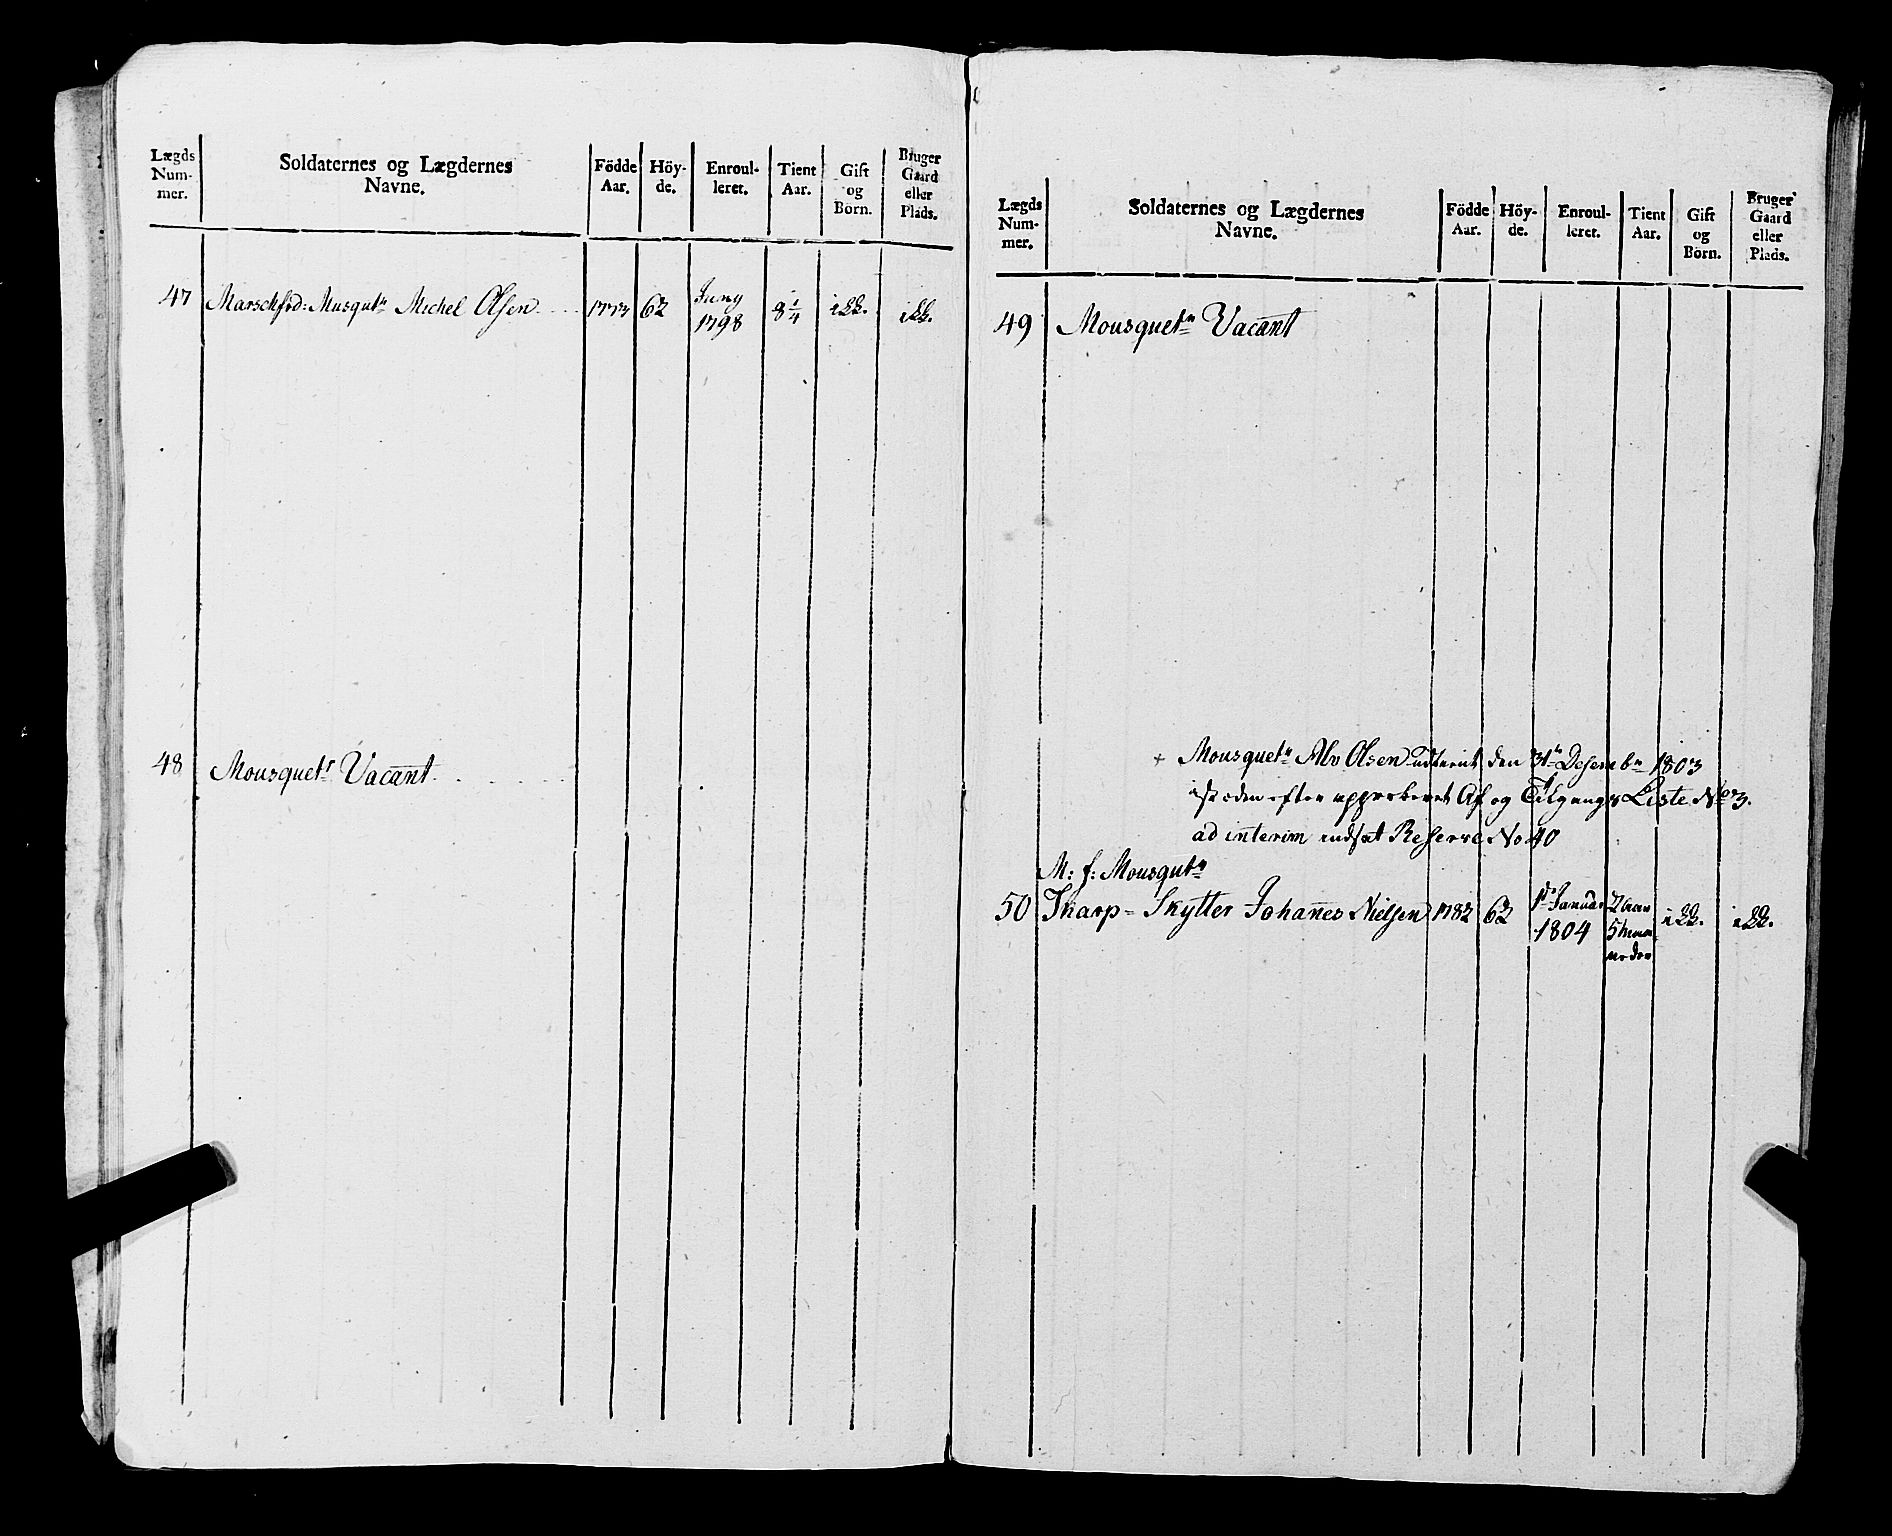 Lægds Num- mer.
Soldaternes og Lægdernes Navne.
Födde Aar.
Höy- de.
Enroul- leret.
Tient Aar.
Gift og Börn.
Bruger Gaard eller Plads.
47 Marschfrd: Musqutr Michel Olsen 1773 62 Juny 1798 8 1/4 ikk. ikk.
48 Mousquetr Vacant
Lægds Num- mer.
Soldaternes og Lægdernes Navne.
Födde Aar.
Höy- de.
Enroul- leret.
Tient Aar.
Gift og Börn.
Bruger Gaard eller Plads.
49 Mousquetr Vacant
+ Mousquetr Alv Olsen udtient den 31te Desembr 1803
isteden efter approberet Af og Tilgangs Liste No 3.
ad interim indsat Reserve No 40
M: f: Mousqutr
50 Skarp- Skytter Johannes Nielsen 1782 62 1te Januar 1804 2 Aar 5 Maa neder ikk. ikk.